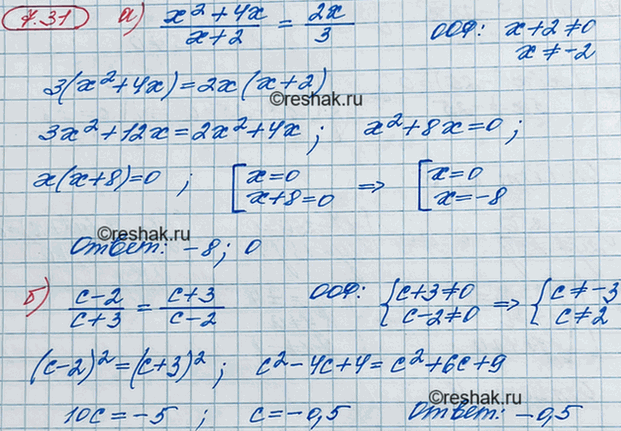 7.31 а) (x² + 4x)/(x+2) = 2x/3 ООФ: x+2≠0
x≠-2
3(x²+4x)=2x(x+2)
©reshak.ru
3x²+12x=2x²+4x; x²+8x=0;
x(x+8)=0 ; [x=0 x+8=0 => [x=0 x=-8
©reshak.ru
Ответ: -8; 0
б) (c-2)/(c+3) = (c+3)/(c-2) ООФ: {c+3≠0 c-2≠0 => {c≠-3 c≠2
(c-2)²=(c+3)²; c²-4c+4=c²+6c+9
©reshak.ru
10c=-5 ; c=-0,5 Ответ: -0,5